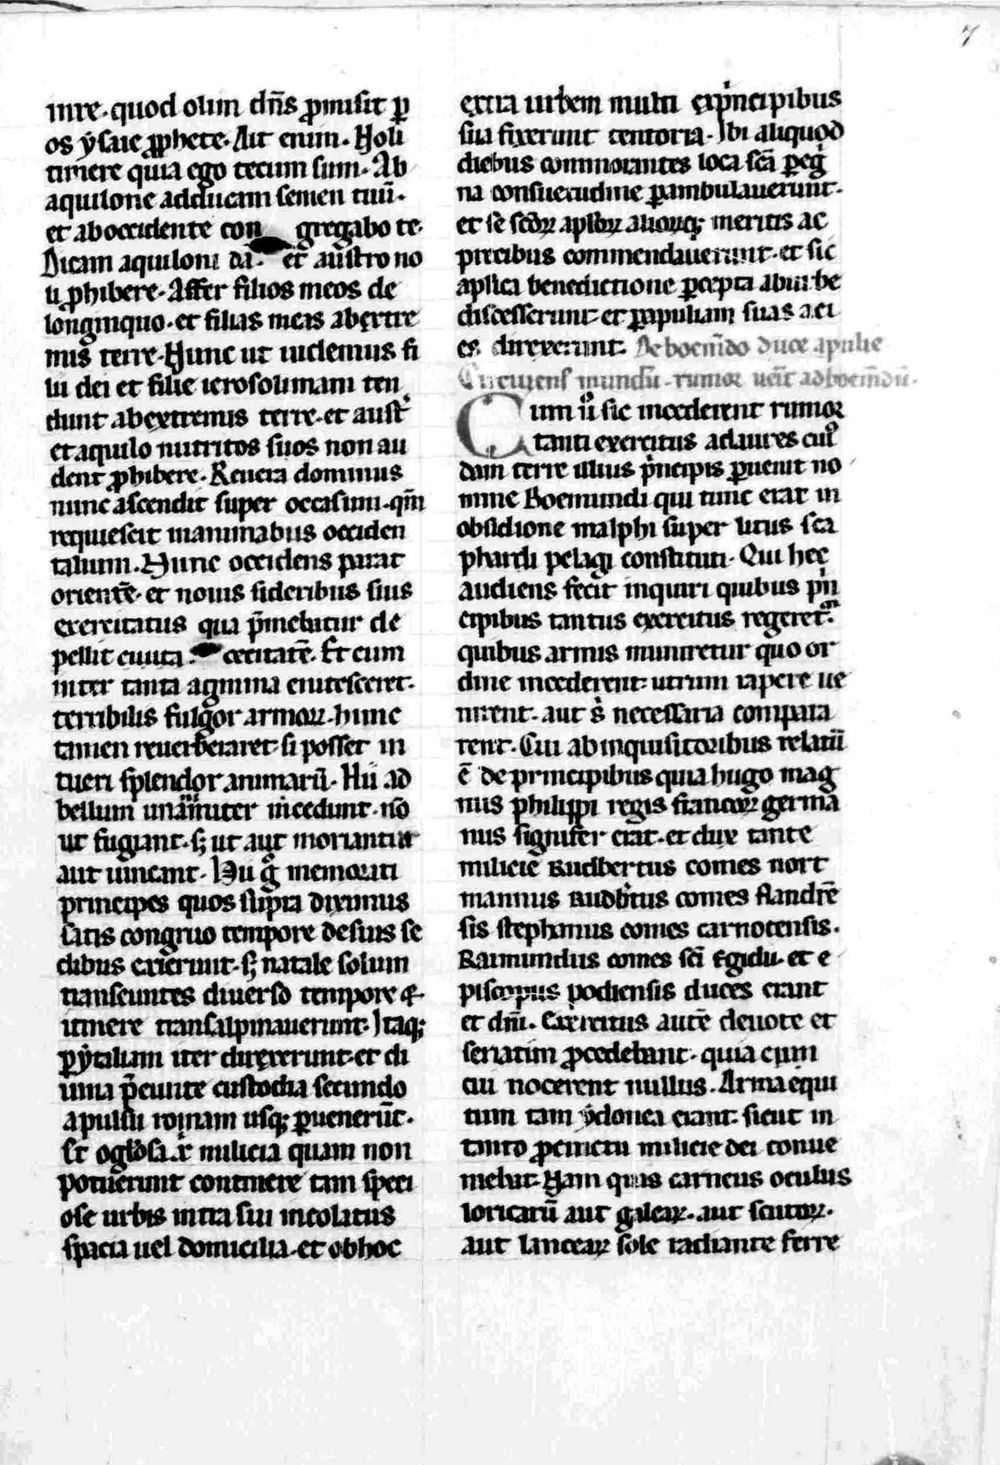 7
inre. quod olim dn̄s p̄misit ꝑ
os ẏsaie ꝓphete. Ait enim. Noli
timere quia ego tecum sum. Ab
aquilone adducam semen tuū.
et ab occidente con gregabo te.
Dicam aquiloni da. et austro no
li ꝓhibere. Affer filios meos de
longinquo. et filias meas ab extre
mis terre. Nunc ut uidemus fi
lii dei et filie ierosolimam ten
dunt ab extremis terre. et aust̾
et aquilo nutritos suos non au
dent ꝓhibere. Reuera dominus
nunc ascendit super occasum. qm̄
requiescit in animabus occiden
talium. Nunc occidens parat
orientē. et nouis sideribus suis
exercitatus qua p̄mebatur de
pellit cecitatē. Et cum
inter tanta agmina enitesceret.
terribilis fulgor armoꝝ. hunc
tamen reuerberaret. si posset in
tueri splendor animarū. Hii ad
bellum unanimiter incedunt. nō
ut fugiant. sꝫ ut aut moriantur
aut uincant. Hii gͦ memorati
principes quos supra diximus
satis congruo tempore de suis se
dibus exierunt. sꝫ natale solum
transeuntes diuerso tempore et
itinere transalpinauerunt. Itaqꝫ
ꝑ ẏtaliam iter direxerunt. et di
uina p̄eunte custodia secundo
apulsu romam usqꝫ ꝑuenerūt.
Et milicia quam non
potuerunt continere tam speci
ose urbis intra sui incolatus
spacia uel domicilia. et ob hoc
extra urbem multi ex pͥncipibus
sua fixerunt tentoria. Ibi aliquod
diebus commorantes loca scā ꝑegͥ
na consuetudine ꝑambulauerunt.
et se scōꝝ apl̄oꝝ alioꝝqꝫ meritis ac
precibus commendauerunt. et sic
apl̄ica benedictione ꝑcepta ab urbe
discesserunt. et ꝑ apuliam suas aci
es direxerunt. De boem̄do duce apulie
Circuiens mundū. rumor uenit ad boem̄dū.
Cum uͦ sic incederent rumor
tanti exercitus ad aures cuiͥ
dam terre illius pͥncipis ꝑuenit no
mine Boemundi qui tunc erat in
obsidione malphi super litus sca
phardi pelagi constituti. Qui hec
audiens fecit inquiri quibus pͥn
cipibus tantus exercitus regeretͬ.
quibus armis muniretur quo or
dine incederent: utrum rapere ue
nirent. aut s̄ necessaria compara
rent. Cui ab inquisitoribus relatū
ē de principibus quia hugo mag
nus philippi regis francoꝝ germa
nus signifer erat. et dux tante
milicie Rudbertus comes nort
mannus Rudb̾tus comes flandrē
sis stephanus comes carnotensis.
Raimundus comes scī Egidii. et e
piscopus podiensis duces erant
et dn̄i. Exercitus autē deuote et
seriatim ꝓcedebant. quia cum
cui nocerent nullus. Arma equi
tum tam ẏdonea erant. sicut in
tanto ꝓcinctu milicie dei conue
niebat. Nam quis carneus oculus
loricarū aut galeaꝝ. aut scutoꝝ.
aut lanceaꝝ sole radiante ferre